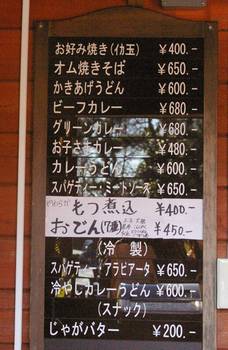 お好み焼き(イカ玉) ￥400.-
オム焼きそば ￥650.-
かきあげうどん ￥600.-
ビーフカレー ￥680.-
グリーンカレー ￥680.-
お子さまカレー ￥480.-
カレーうどん ￥600.-
スパゲティー・ミートソース ￥650.-
やわらか もつ煮込 ￥400.-
おでん(7種) ￥450.-
(冷 製)
スパゲティー・アラビアータ ￥650.-
冷やしカレーうどん ￥600.-
(スナック)
じゃがバター ￥200.-